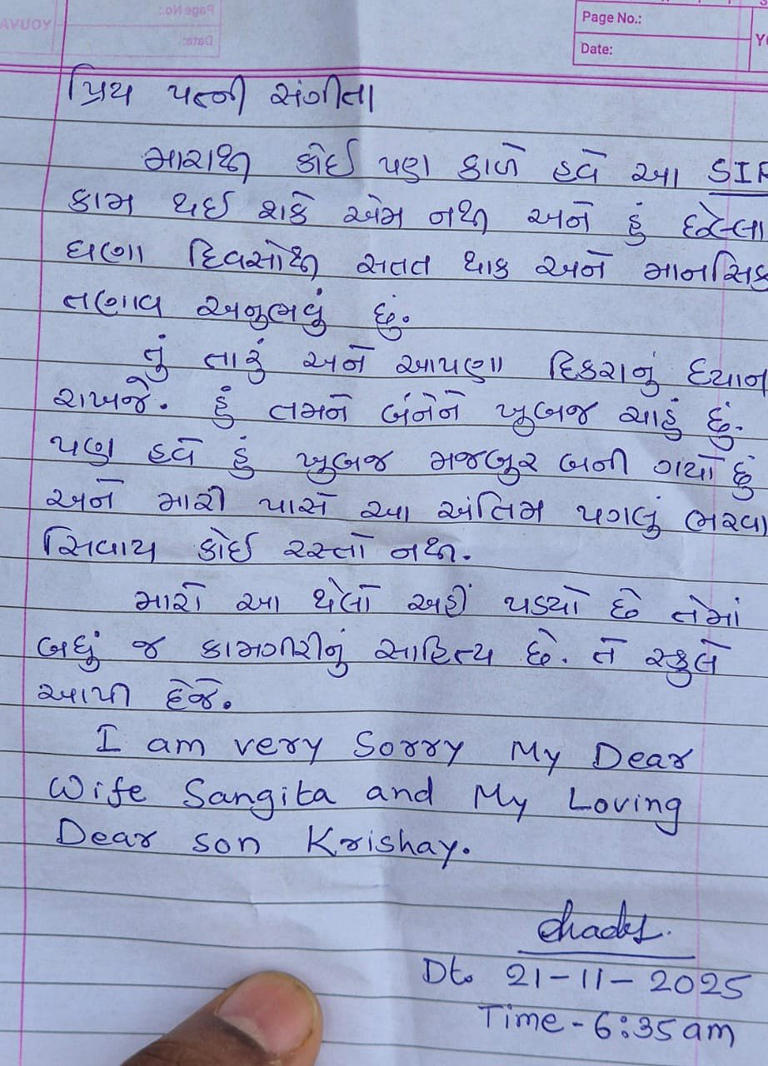 Page No.:
Date:
પ્રિય પત્ની સંગીતા
મારાથી કોઈ પણ કાળે હવે આ SIR
કામ થઈ શકે એમ નથી અને હું છેલ્લા
ઘણા દિવસોથી સતત થાક અને માનસિક
તણાવ અનુભવું છું.
તું તારું અને આપણા દિકરાનું ધ્યાન
રાખજે. હું તમને બંનેને ખુબજ ચાહું છું.
પણ હવે હું ખુબજ મજબુર બની ગયો છું
અને મારી પાસે આ અંતિમ પગલું ભરવા
સિવાય કોઈ રસ્તો નથી.
મારો આ થેલો અહીં પડ્યો છે તેમાં
બધું જ કામગીરીનું સાહિત્ય છે. તે સ્કુલે
આપી દેજે.
I am very Sorry My Dear
Wife Sangita and My Loving
Dear son Krishay.
Dt. 21-11-2025
Time - 6:35 am